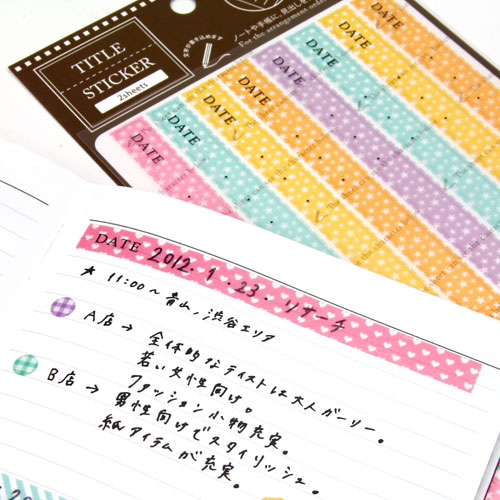 TITLE
STICKER
2sheets
文字が書き込めます
ノートや手帳に、見出しを
For the arrangement order
DATE
DATE
DATE
DATE
DATE
DATE
DATE
DATE
DATE 2012.1.23. リサーチ
★ 11:00～青山、渋谷エリア
A店→ 全体的なテイストは大人ガーリー。
若い女性向け。
ファッション小物充実。
B店→ 男性向けでスタイリッシュ。
紙アイテムが充実。